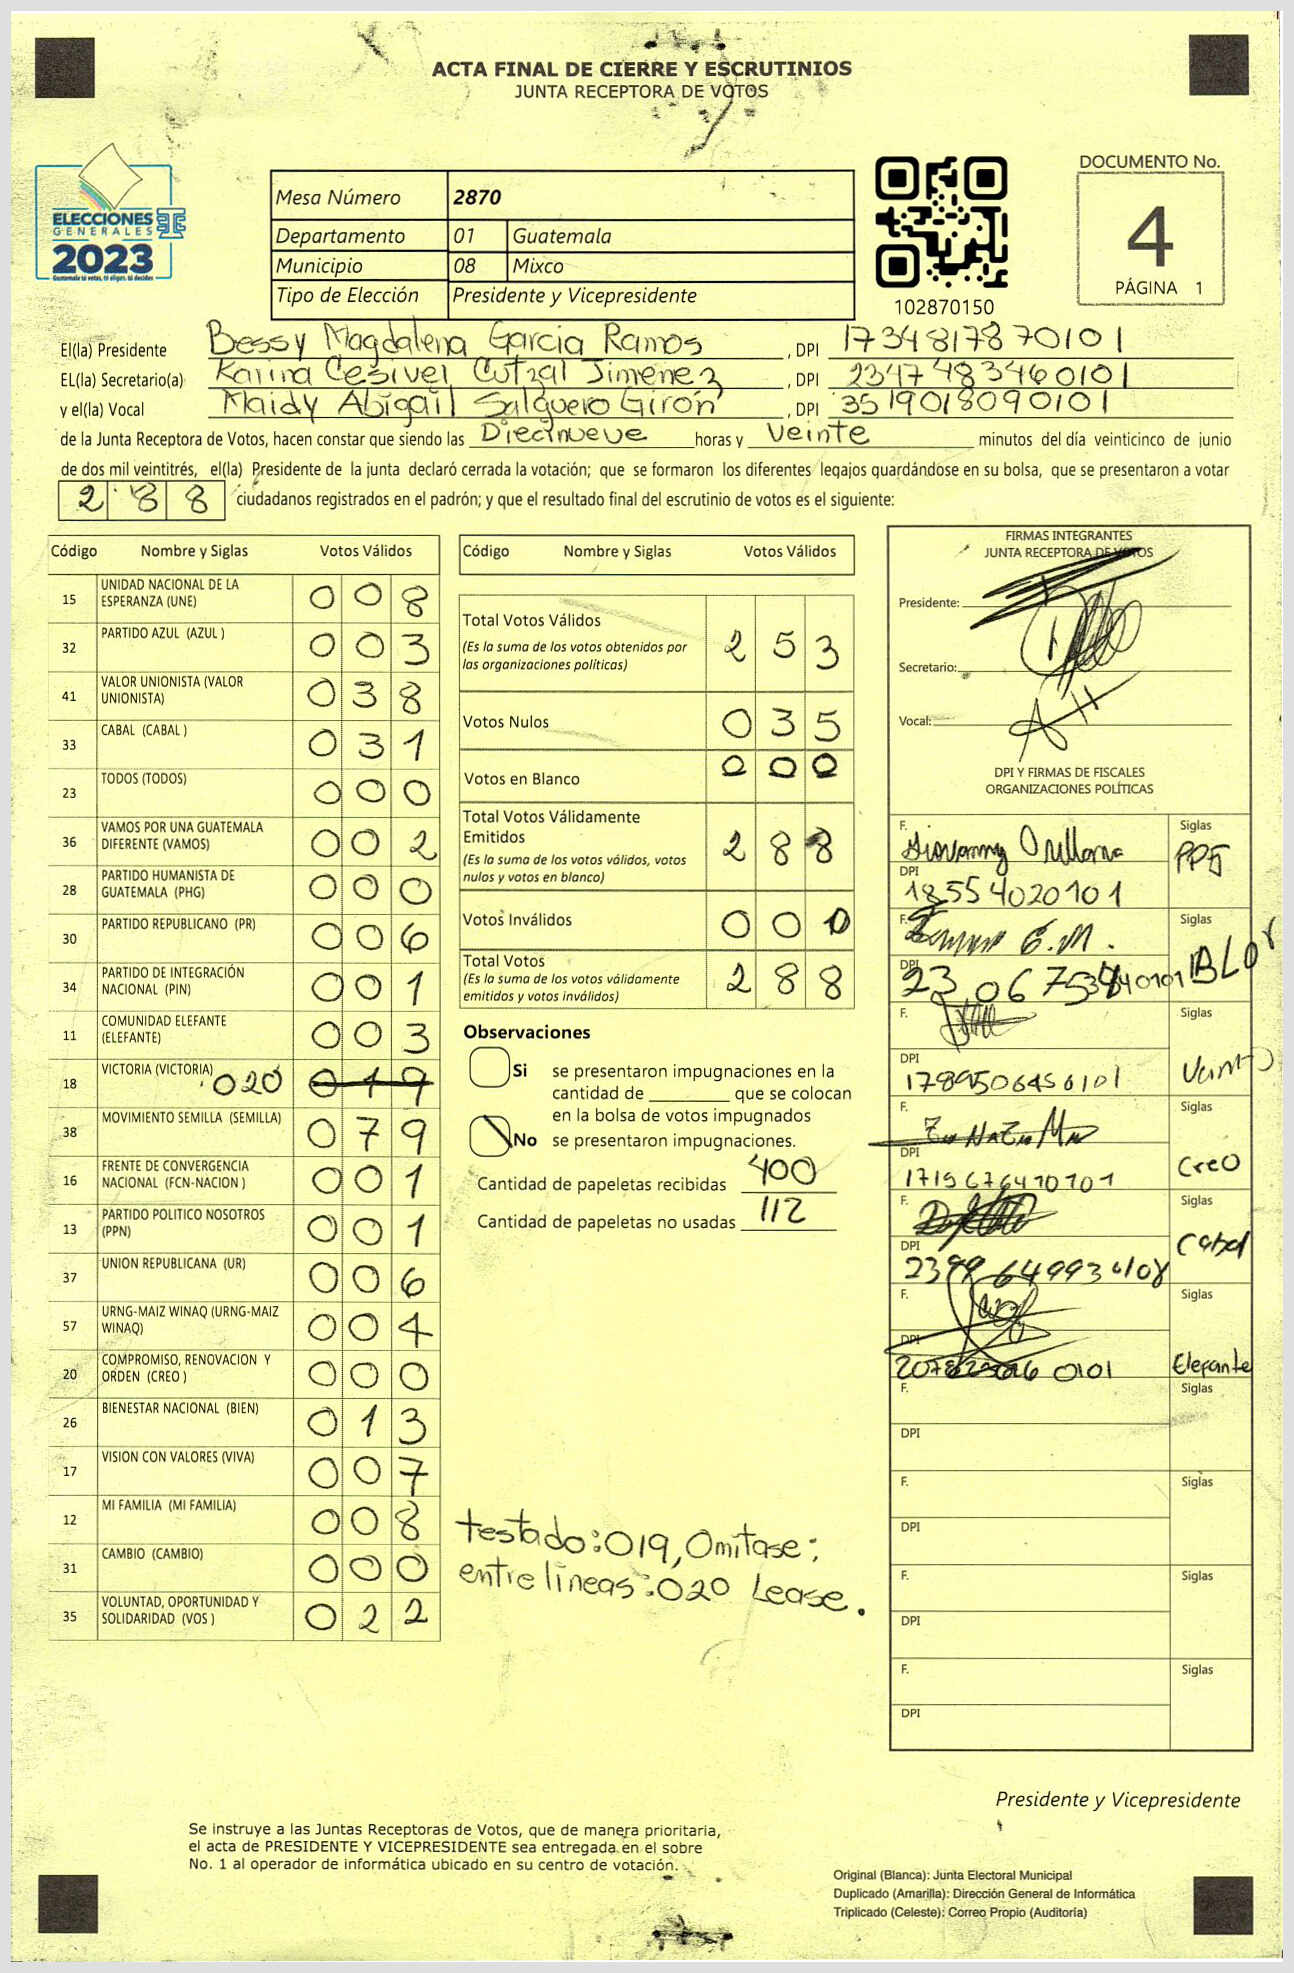 ACTA FINAL DE CIERRE Y ESCRUTINIOS
JUNTA RECEPTORA DE VOTOS
ELECCIONES
GENERALES
2023
Guatemala tú votas, tú eliges, tú decides
Mesa Número 2870
Departamento 01 Guatemala
Municipio 08 Mixco
Tipo de Elección Presidente y Vicepresidente
102870150
DOCUMENTO No.
4
PÁGINA 1
El(la) Presidente Bessy Magdalena Garcia Ramos, DPI 1734817870101
EL(la) Secretario(a) Karina Cesivel Cutzal Jiménez, DPI 2347483460101
y el(la) Vocal Maidy Abigail Salguero Girón, DPI 3519018090101
de la Junta Receptora de Votos, hacen constar que siendo las Diecinueve horas y Veinte minutos del día veinticinco de junio
de dos mil veintitrés, el(la) Presidente de la junta declaró cerrada la votación; que se formaron los diferentes legajos guardándose en su bolsa, que se presentaron a votar
288 ciudadanos registrados en el padrón; y que el resultado final del escrutinio de votos es el siguiente:
Código Nombre y Siglas Votos Válidos
15 UNIDAD NACIONAL DE LA ESPERANZA (UNE) 008
32 PARTIDO AZUL (AZUL ) 003
41 VALOR UNIONISTA (VALOR UNIONISTA) 038
33 CABAL (CABAL ) 031
23 TODOS (TODOS) 000
36 VAMOS POR UNA GUATEMALA DIFERENTE (VAMOS) 002
28 PARTIDO HUMANISTA DE GUATEMALA (PHG) 000
30 PARTIDO REPUBLICANO (PR) 006
34 PARTIDO DE INTEGRACIÓN NACIONAL (PIN) 001
11 COMUNIDAD ELEFANTE (ELEFANTE) 003
18 VICTORIA (VICTORIA) 020 019
38 MOVIMIENTO SEMILLA (SEMILLA) 079
16 FRENTE DE CONVERGENCIA NACIONAL (FCN-NACION ) 001
13 PARTIDO POLITICO NOSOTROS (PPN) 001
37 UNION REPUBLICANA (UR) 006
57 URNG-MAIZ WINAQ (URNG-MAIZ WINAQ) 004
20 COMPROMISO, RENOVACION Y ORDEN (CREO ) 000
26 BIENESTAR NACIONAL (BIEN) 013
17 VISION CON VALORES (VIVA) 007
12 MI FAMILIA (MI FAMILIA) 008
31 CAMBIO (CAMBIO) 000
35 VOLUNTAD, OPORTUNIDAD Y SOLIDARIDAD (VOS ) 022
Código Nombre y Siglas Votos Válidos
Total Votos Válidos 253
(Es la suma de los votos obtenidos por
las organizaciones políticas)
Votos Nulos 035
Votos en Blanco 000
Total Votos Válidamente Emitidos 288
(Es la suma de los votos válidos, votos
nulos y votos en blanco)
Votos Inválidos 000
Total Votos 288
(Es la suma de los votos válidamente
emitidos y votos inválidos)
Observaciones
Si se presentaron impugnaciones en la
cantidad de ________ que se colocan
en la bolsa de votos impugnados
No se presentaron impugnaciones.
Cantidad de papeletas recibidas 400
Cantidad de papeletas no usadas 112
testado:019, Omítase;
entre líneas:020 Lease.
FIRMAS INTEGRANTES
JUNTA RECEPTORA DE VOTOS
Presidente:
Secretario:
Vocal:
DPI Y FIRMAS DE FISCALES
ORGANIZACIONES POLÍTICAS
F. Giovanny Orellana Siglas
DPI 18554020101
F. Siglas
DPI
F. Siglas
DPI 1789506450101
F. Siglas Creo
DPI 1719676410101
F. Siglas Cabal
DPI
F. Siglas Elefante
DPI
F. Siglas
DPI
F. Siglas
DPI
F. Siglas
DPI
F. Siglas
DPI
Presidente y Vicepresidente
Se instruye a las Juntas Receptoras de Votos, que de manera prioritaria,
el acta de PRESIDENTE Y VICEPRESIDENTE sea entregada en el sobre
No. 1 al operador de informática ubicado en su centro de votación.
Original (Blanca): Junta Electoral Municipal
Duplicado (Amarilla): Dirección General de Informática
Triplicado (Celeste): Correo Propio (Auditoría)